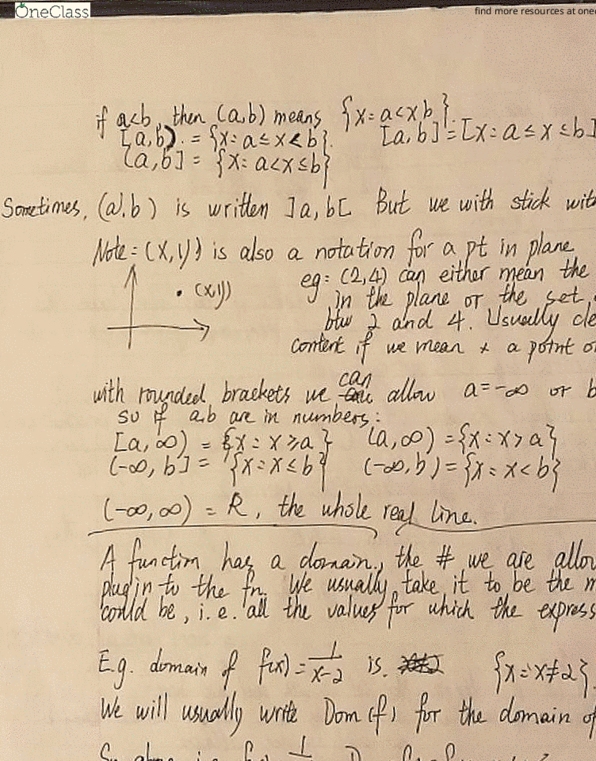 OneClass
find more resources at one
if a<b, then (a,b) means {x=a<xb,}.
[a,b) = {x=a≤x<b}. [a,b] = [x=a≤x≤b]
(a,b] = {x=a<x≤b}
Sometimes, (a,b) is written ]a,b[ But we with stick wit
Note=(x,y) is also a notation for a pt in plane
(x,y)
eg= (2,4) can either mean the
in the plane or the set,
btw 2 and 4. Usually cle
content if we mean a point o
can
with rounded brackets we allow a=-∞ or b
so if a,b are in numbers:
[a,∞) = {x=x≥a} (a,∞) = {x=x>a}
(-∞,b] = {x=x≤b} (-∞,b) = {x=x<b}
(-∞,∞) = R, the whole real line.
A function has a domain, the # we are allow
plug in to the fn. We usually take it to be the m
could be, i.e. all the values for which the express
E.g. domain of f(x) = 1/x-2 is. {x=x≠2}.
We will usually write Dom(f) for the domain of